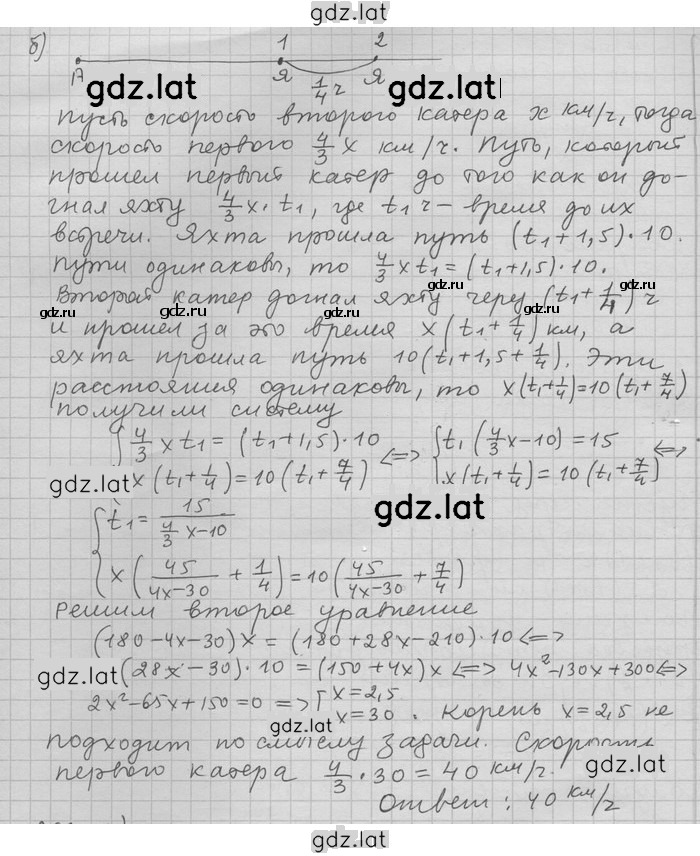 gdz.lat
б)
1 2
А Я 1/4 ч Я
gdz.lat gdz.lat
пусть скорость второго катера x км/ч, тогда
скорость первого 4/3 x км/ч. Путь, который
прошел первый катер до того как он до-
гнал яхту 4/3 x · t₁, где t₁ ч – время до их
встречи. Яхта прошла путь (t₁ + 1,5) · 10.
пути одинаковы, то 4/3 x t₁ = (t₁ + 1,5) · 10.
Второй катер догнал яхту через (t₁ + 1/4) ч
gdz.lat gdz.lat gdz.lat
и прошел за это время x (t₁ + 1/4) км, а
яхта прошла путь 10 (t₁ + 1,5 + 1/4). Эти
расстояния одинаковы, то x (t₁ + 1/4) = 10 (t₁ + 7/4)
получили систему
{ 4/3 x t₁ = (t₁ + 1,5) · 10 <=> { t₁ (4/3 x – 10) = 15 <=>
gdz.lat x (t₁ + 1/4) = 10 (t₁ + 7/4) x (t₁ + 1/4) = 10 (t₁ + 7/4)
gdz.lat
{ t₁ = 15 / (4/3 x – 10)
x (45/(4x – 30) + 1/4) = 10 (45/(4x – 30) + 7/4)
Решим второе уравнение
(180 – 4x – 30) x = (180 + 28x – 210) · 10 <=>
gdz.lat (28x – 30) · 10 = (150 + 4x) x <=> 4x² – 130x + 300 <=>
2x² – 65x + 150 = 0 => [ x = 2,5
x = 30 . Корень x = 2,5 не
gdz.lat
подходит по смыслу задачи. Скорость
первого катера 4/3 · 30 = 40 км/г.
gdz.lat
Ответ: 40 км/г
gdz.lat